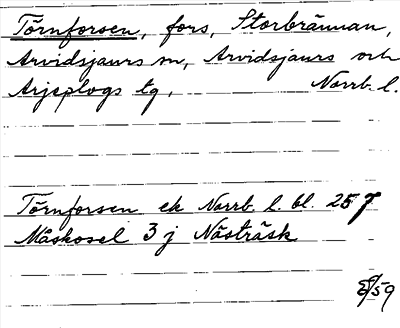 Törnforsen, fors, Storbrännan,
Arvidsjaurs sn, Arvidsjaurs och
Arjeplogs tg, Norrb. l.
Törnforsen ek Norrb. l. bl. 25 7
Måskosel 3 j Nästräsk
59